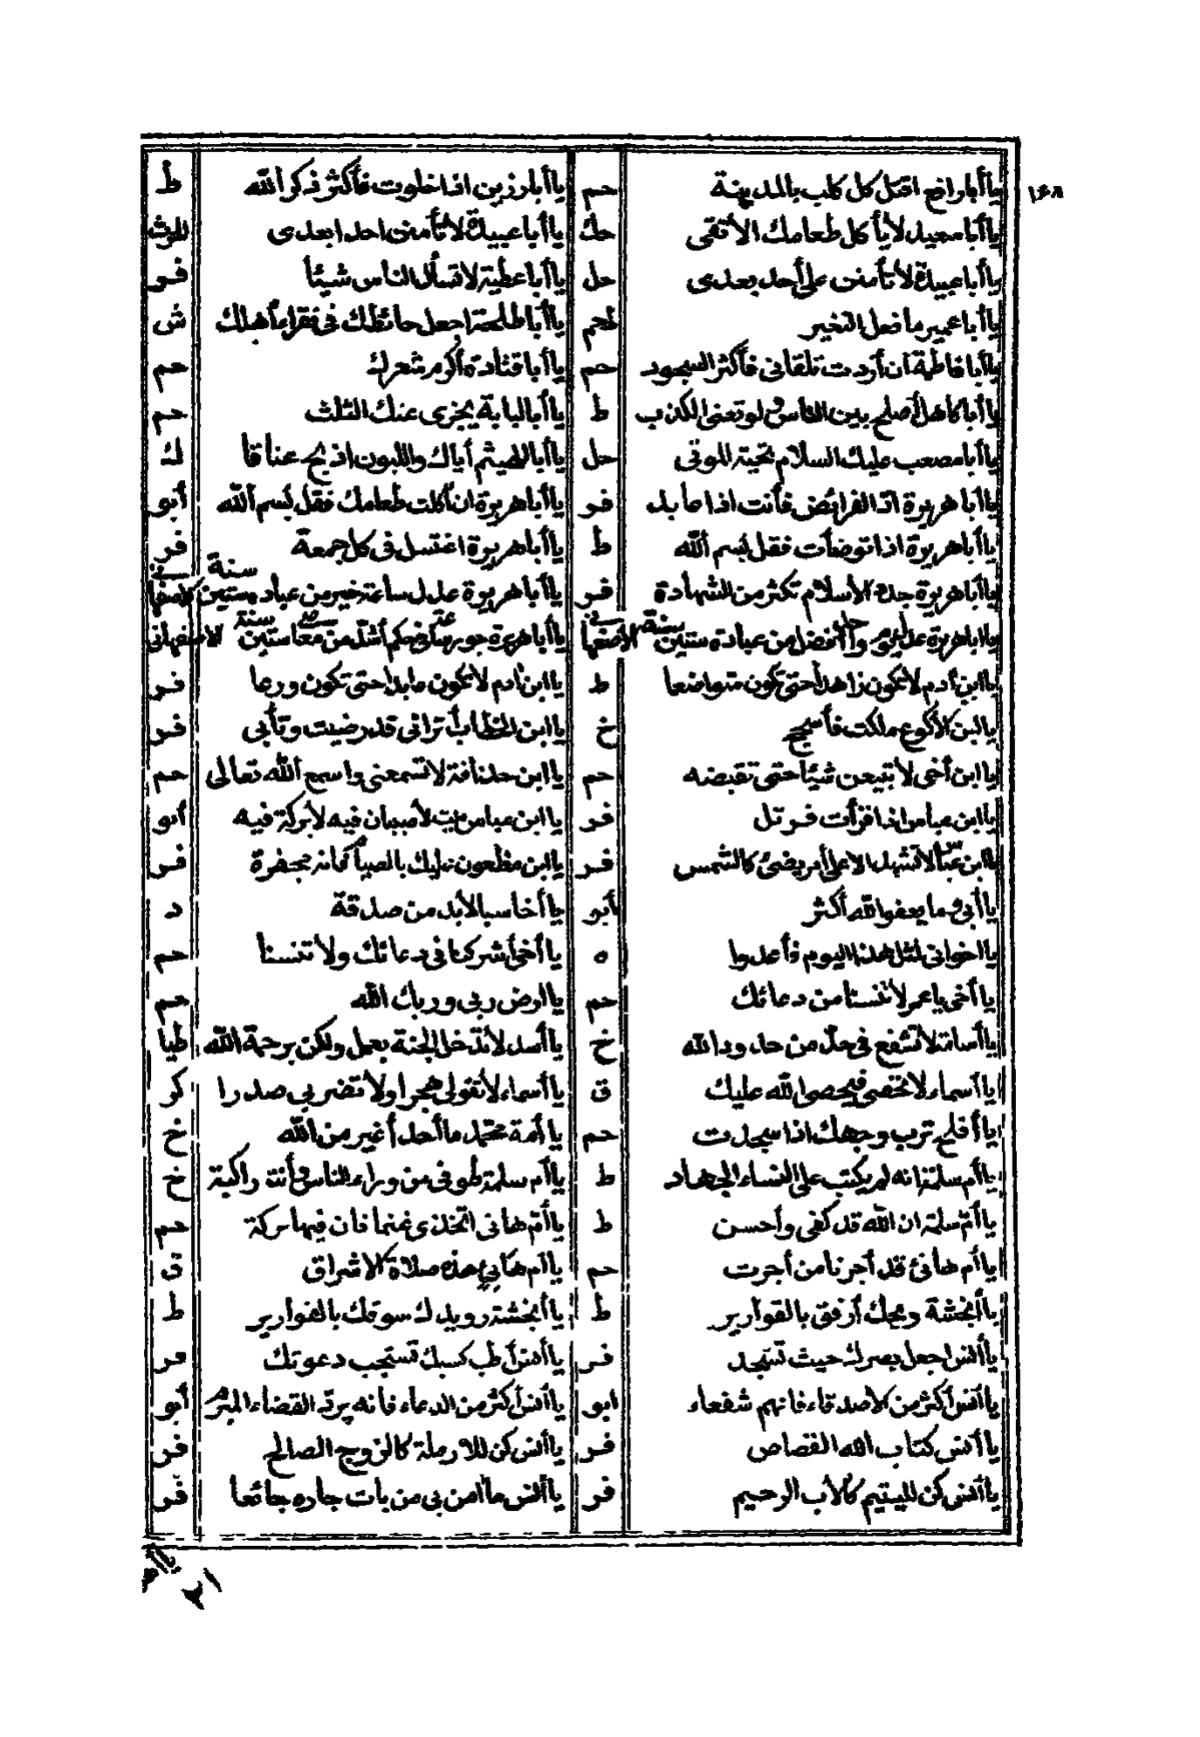 ١٦٨
يا أبا رافع اقتل كل كلب بالمدينة حم يا أبا رزين اذا خلوت فأكثر ذكر الله ط
يا أبا سعيد لا يأكل طعامك الا تقى حك يا أبا عبيدة لا تأمنن احدا بعدى للرث
يا أبا عبيدة لا تأمنن على أحد بعدى حل يا أبا عطية لا تسأل الناس شيئا فر
يا أبا عمير ما فعل النغير حم يا أبا طلحة اجعل حائطك فى فقراء أهلك ش
يا أبا فاطمة ان أردت تلقانى فأكثر السجود حم يا أبا قتادة أكرم شعرك حم
يا أبا كاهل أصلح بين الناس ولو تعنى الكذب ط يا أبا لبابة يجزى عنك الثلث حم
يا أبا مصعب عليك السلام تحية الموتى حل يا أبا الهيثم أياك واللبون اذبح عناقا ك
يا أبا هريرة ادّ الفرائض فأنت اذا عابد فر يا أبا هريرة ان أكلت طعامك فقل بسم الله أبو
يا أبا هريرة اذا توضأت فقل بسم الله ط يا أبا هريرة اغتسل فى كل جمعة فر
يا أبا هريرة جدد الأسلام تكثر من الشهادة فر يا أبا هريرة عدل ساعة خير من عبادة ستين سنة
يا أبا هريرة عدل يوم واحد أفضل من عبادة ستين سنة الأصفهانى يا أبا هريرة جور ساعة فى حكم أشد من معاصى ستين سنة الاصفهانى
يا ابن أدم لا تكون زاهدا حتى تكون متواضعا ط يا ابن ادم لا تكون عابدا حتى تكون ورعا فر
يا ابن الأكوع ملكت فأسجح خ يا ابن الخطاب أترانى قد رضيت وتأبى فر
يا ابن أخى لا تبيعن شيئا حتى تقبضه حم يا ابن حذافة لا تسمعنى واسمع الله تعالى حم
يا ابن عباس اذا قرأت فرتل فر يا ابن عباس بيت لا صبيان فيه لا بركة فيه أبو
يا ابن عباس لا تشهد الا على أمر يضئ كالشمس فر يا ابن مظعون عليك بالصيام فانه مجفرة فر
يا أبى وما يعفو الله أكثر أبو يا أخا سبا لابد من صدقة د
يا اخوانى لمثل هذا اليوم فأعدوا ه يا أخى أشركنا فى دعائك ولا تنسنا حم
يا أخى يا عمر لا تنسنا من دعائك حم يا ارض ربى وربك الله حم
يا أسامة لا تشفع فى حد من حدود الله خ يا أسد لا تدخل الجنة بعمل ولكن برحمة الله طيا
يا أسماء لا تحصى فيحصى الله عليك ق يا أسماء لا تقولى هجرا ولا تضربى صدرا كر
يا أفلح ترب وجهك اذا سجدت حم يا أمة محمد ما أحد أغير من الله خ
يا أم سلمة انه لم يكتب على النساء الجهاد ط يا أم سلمة طوفى من وراء الناس وأنت راكبة خ
يا أم سلمة ان الله قد كفى وأحسن ط يا أم هانى اتخذى غنما فان فيها بركة حم
يا أم هانئ قد أجرنا من أجرت حم يا أم هانئ هذه صلاة الاشراق ق
يا أنجشة ويحك أرفق بالقوارير ط يا أنجشة رويدك سوقك بالقوارير ط
يا أنس اجعل بصرك حيث تسجد فر يا أنس أطب كسبك تستجب دعوتك فر
يا أنس أكثر من الأصدقاء فانهم شفعاء ابو يا أنس أكثر من الدعاء فانه يردّ القضاء المبرم أبو
يا أنس كتاب الله القصاص فر يا أنس كن للارملة كالزوج الصالح فر
يا أنس كن لليتيم كالأب الرحيم فر يا أنس ما أمن بى من بات جاره جائعا فر
٢١